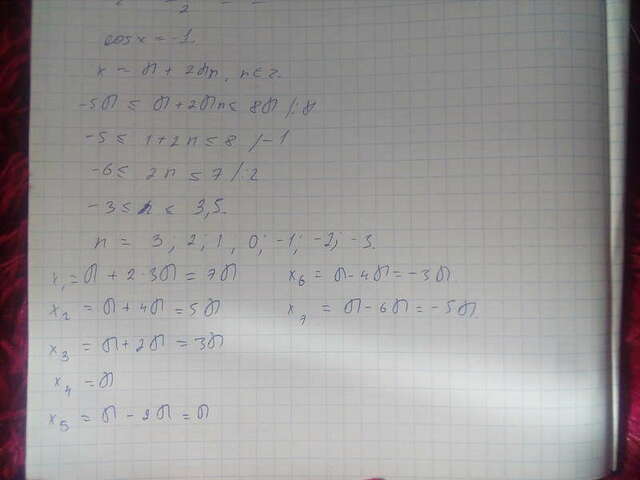 2
cos x = -1.
x = π + 2πn, n ∈ z.
-5π ≤ π + 2πn ≤ 8π /:π
-5 ≤ 1 + 2n ≤ 8 /-1
-6 ≤ 2n ≤ 7 /:2
-3 ≤ n ≤ 3,5.
n = 3; 2; 1, 0; -1; -2; -3.
x₁ = π + 2·3π = 7π
x₂ = π + 4π = 5π
x₃ = π + 2π = 3π
x₄ = π
x₅ = π - 2π = π
x₆ = π - 4π = -3π
x₇ = π - 6π = -5π.